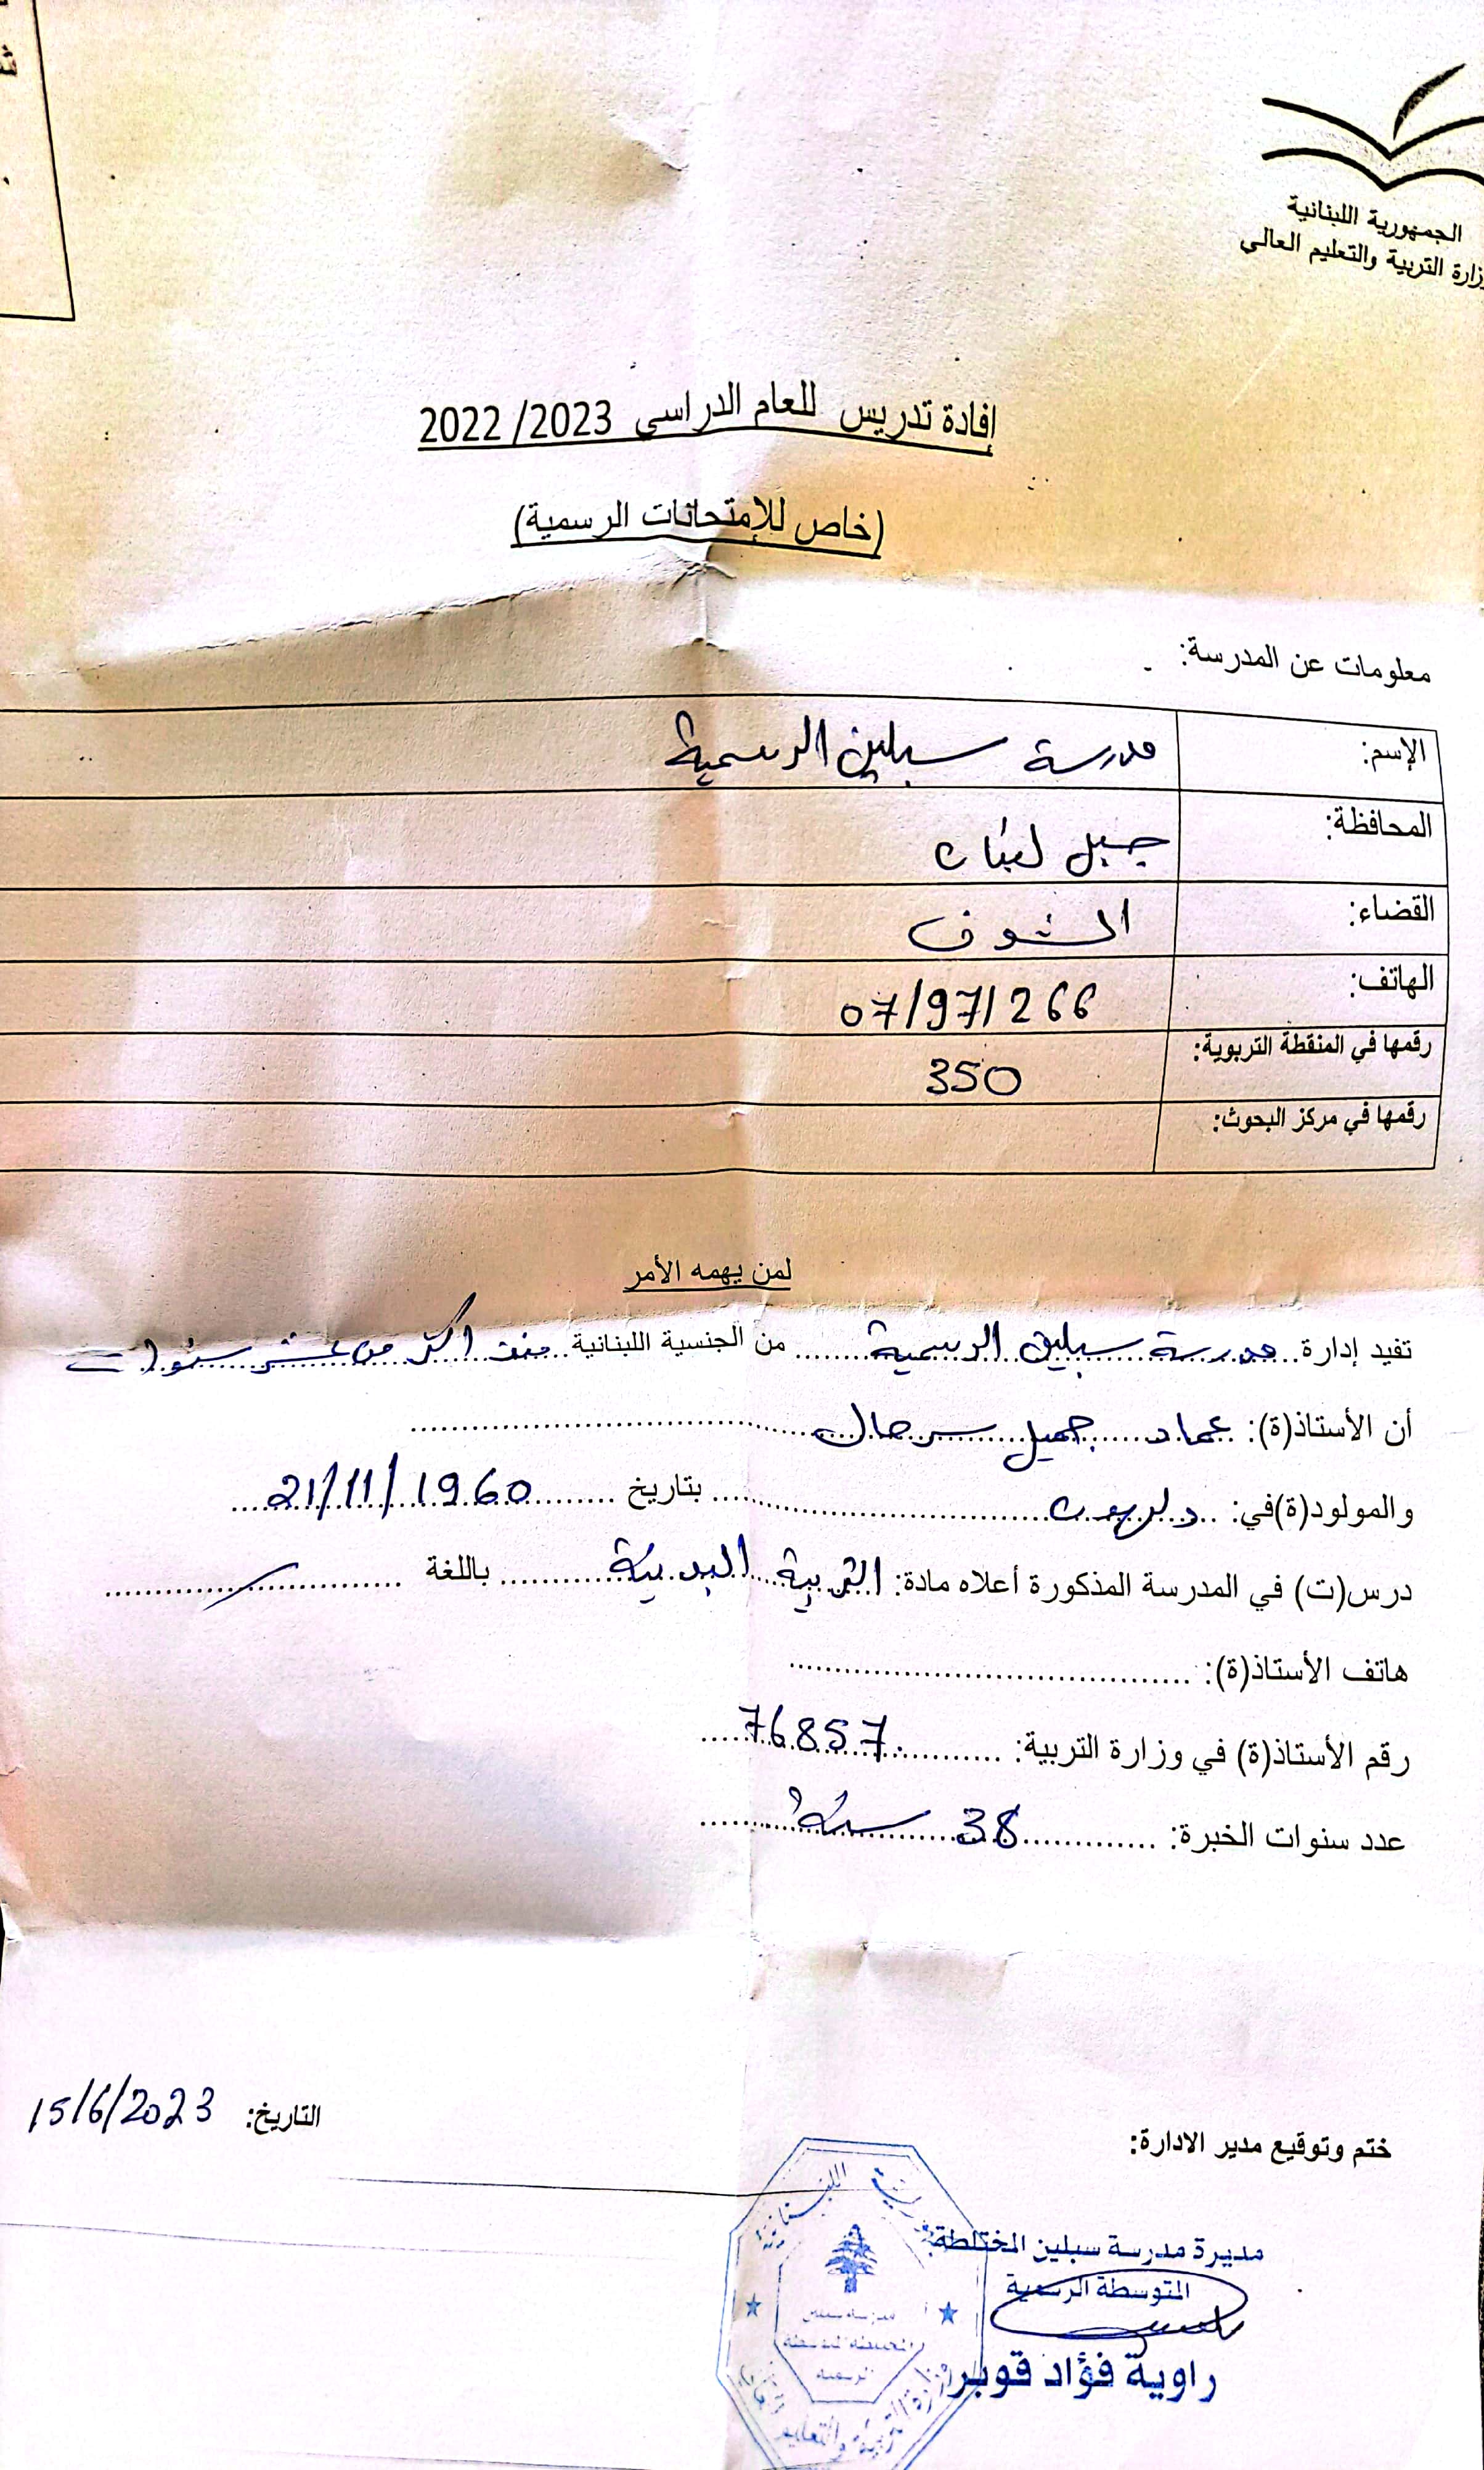 الجمهورية اللبنانية
وزارة التربية والتعليم العالي
إفادة تدريس للعام الدراسي 2023/ 2022
(خاص للإمتحانات الرسمية)
معلومات عن المدرسة:
الإسم: مدرسة سبلين الرسمية
المحافظة: جبل لبنان
القضاء: الشوف
الهاتف: 07/971266
رقمها في المنقطة التربوية: 350
رقمها في مركز البحوث:
لمن يهمه الأمر
تفيد إدارة مدرسة سبلين الرسمية من الجنسية اللبنانية منذ اكثر من عشر سنوات
أن الأستاذ(ة): عماد جميل سرحال
والمولود(ة)في: دلهون بتاريخ 21/11/1960
درس(ت) في المدرسة المذكورة أعلاه مادة: التربية البدنية باللغة
هاتف الأستاذ(ة):
رقم الأستاذ(ة) في وزارة التربية: 76857
عدد سنوات الخبرة: 38 سنة
التاريخ: 15/6/2023
ختم وتوقيع مدير الادارة:
مديرة مدرسة سبلين المختلطة
المتوسطة الرسمية
راوية فؤاد قوبر